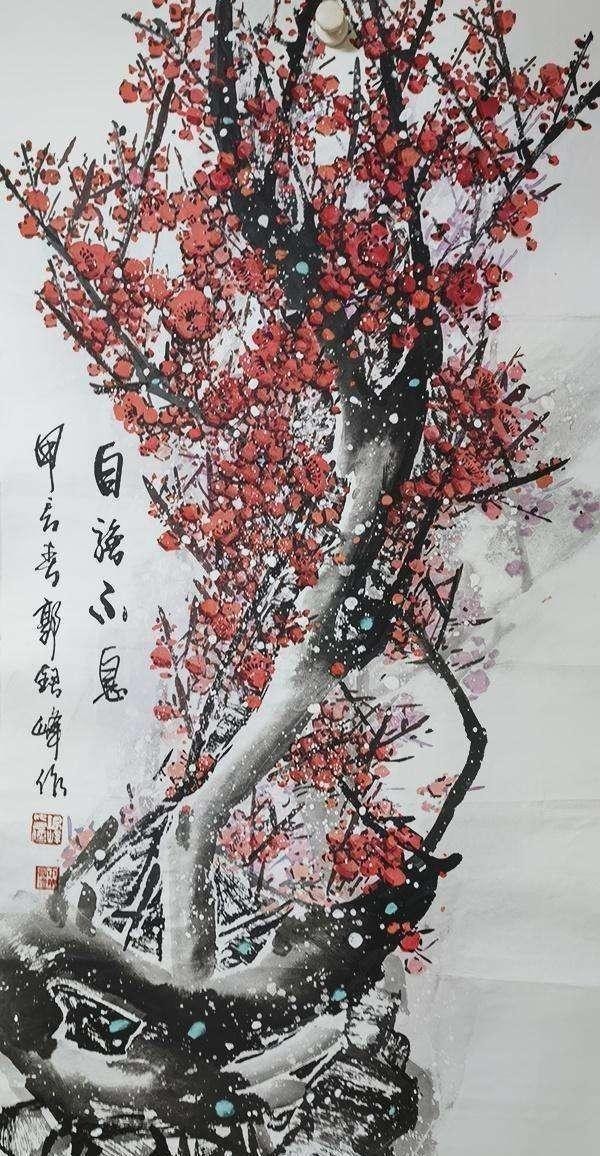 自強不息
甲辰春郭峰作